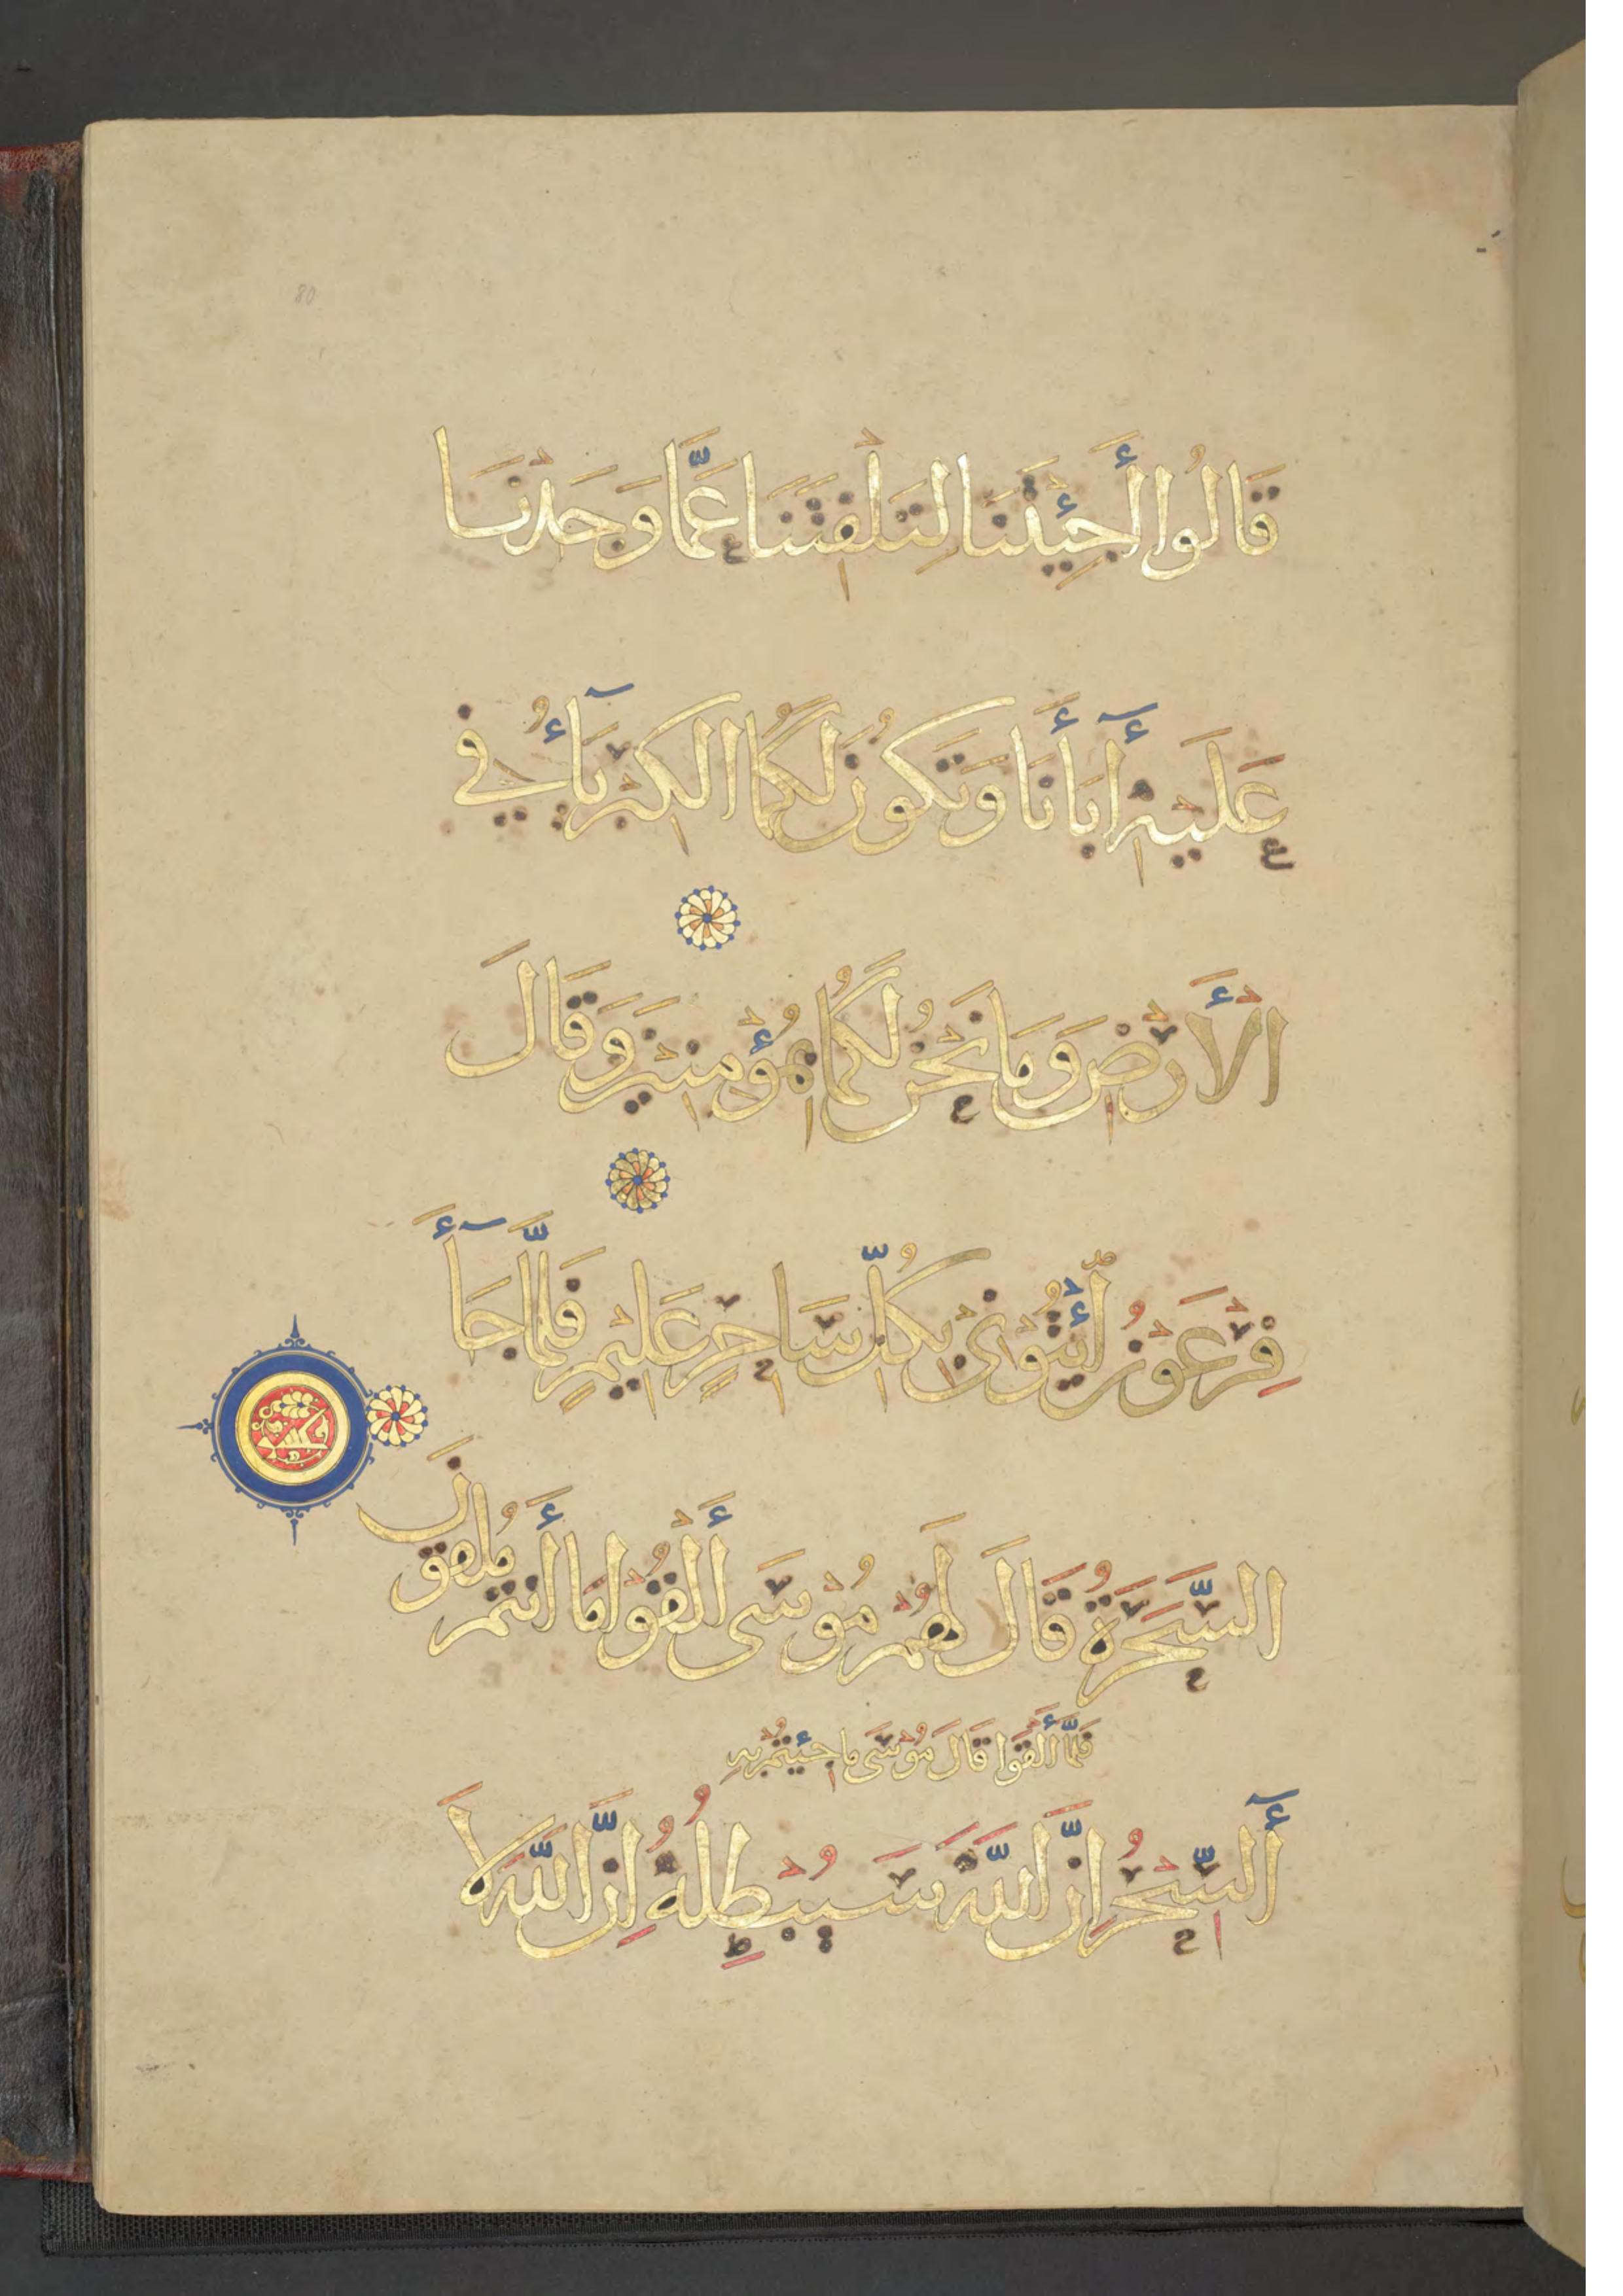 80
قَالُوا أَجِئْتَنَا لِتَلْفِتَنَا عَمَّا وَجَدْنَا
عَلَيْهِ أٓبَأَنَا وَتَكُونَ لَكُمَا الْكِبْرِيَآءُ فِي
الْأَرْضِ وَمَا نَحْنُ لَكُمَا بِمُؤْمِنِينَ وَقَالَ
فِرْعَوْنُ ائْتُوْنِي بِكُلِّ سَاحِرٍ عَلِيْمٍ فَلَمَّا جَآءَ
السَّحَرَةُ قَالَ لَهُمْ مُوْسَى أَلْقُوْا مَا أَنْتُمْ مُلْقُونَ
فَلَمَّا أَلْقَوْا قَالَ مُوْسَى مَا جِئْتُمْ بِهِ
أٓلسِّحْرُ إِنَّ اللَّهَ سَيُبْطِلُهُ إِنَّ اللَّهَ لَا